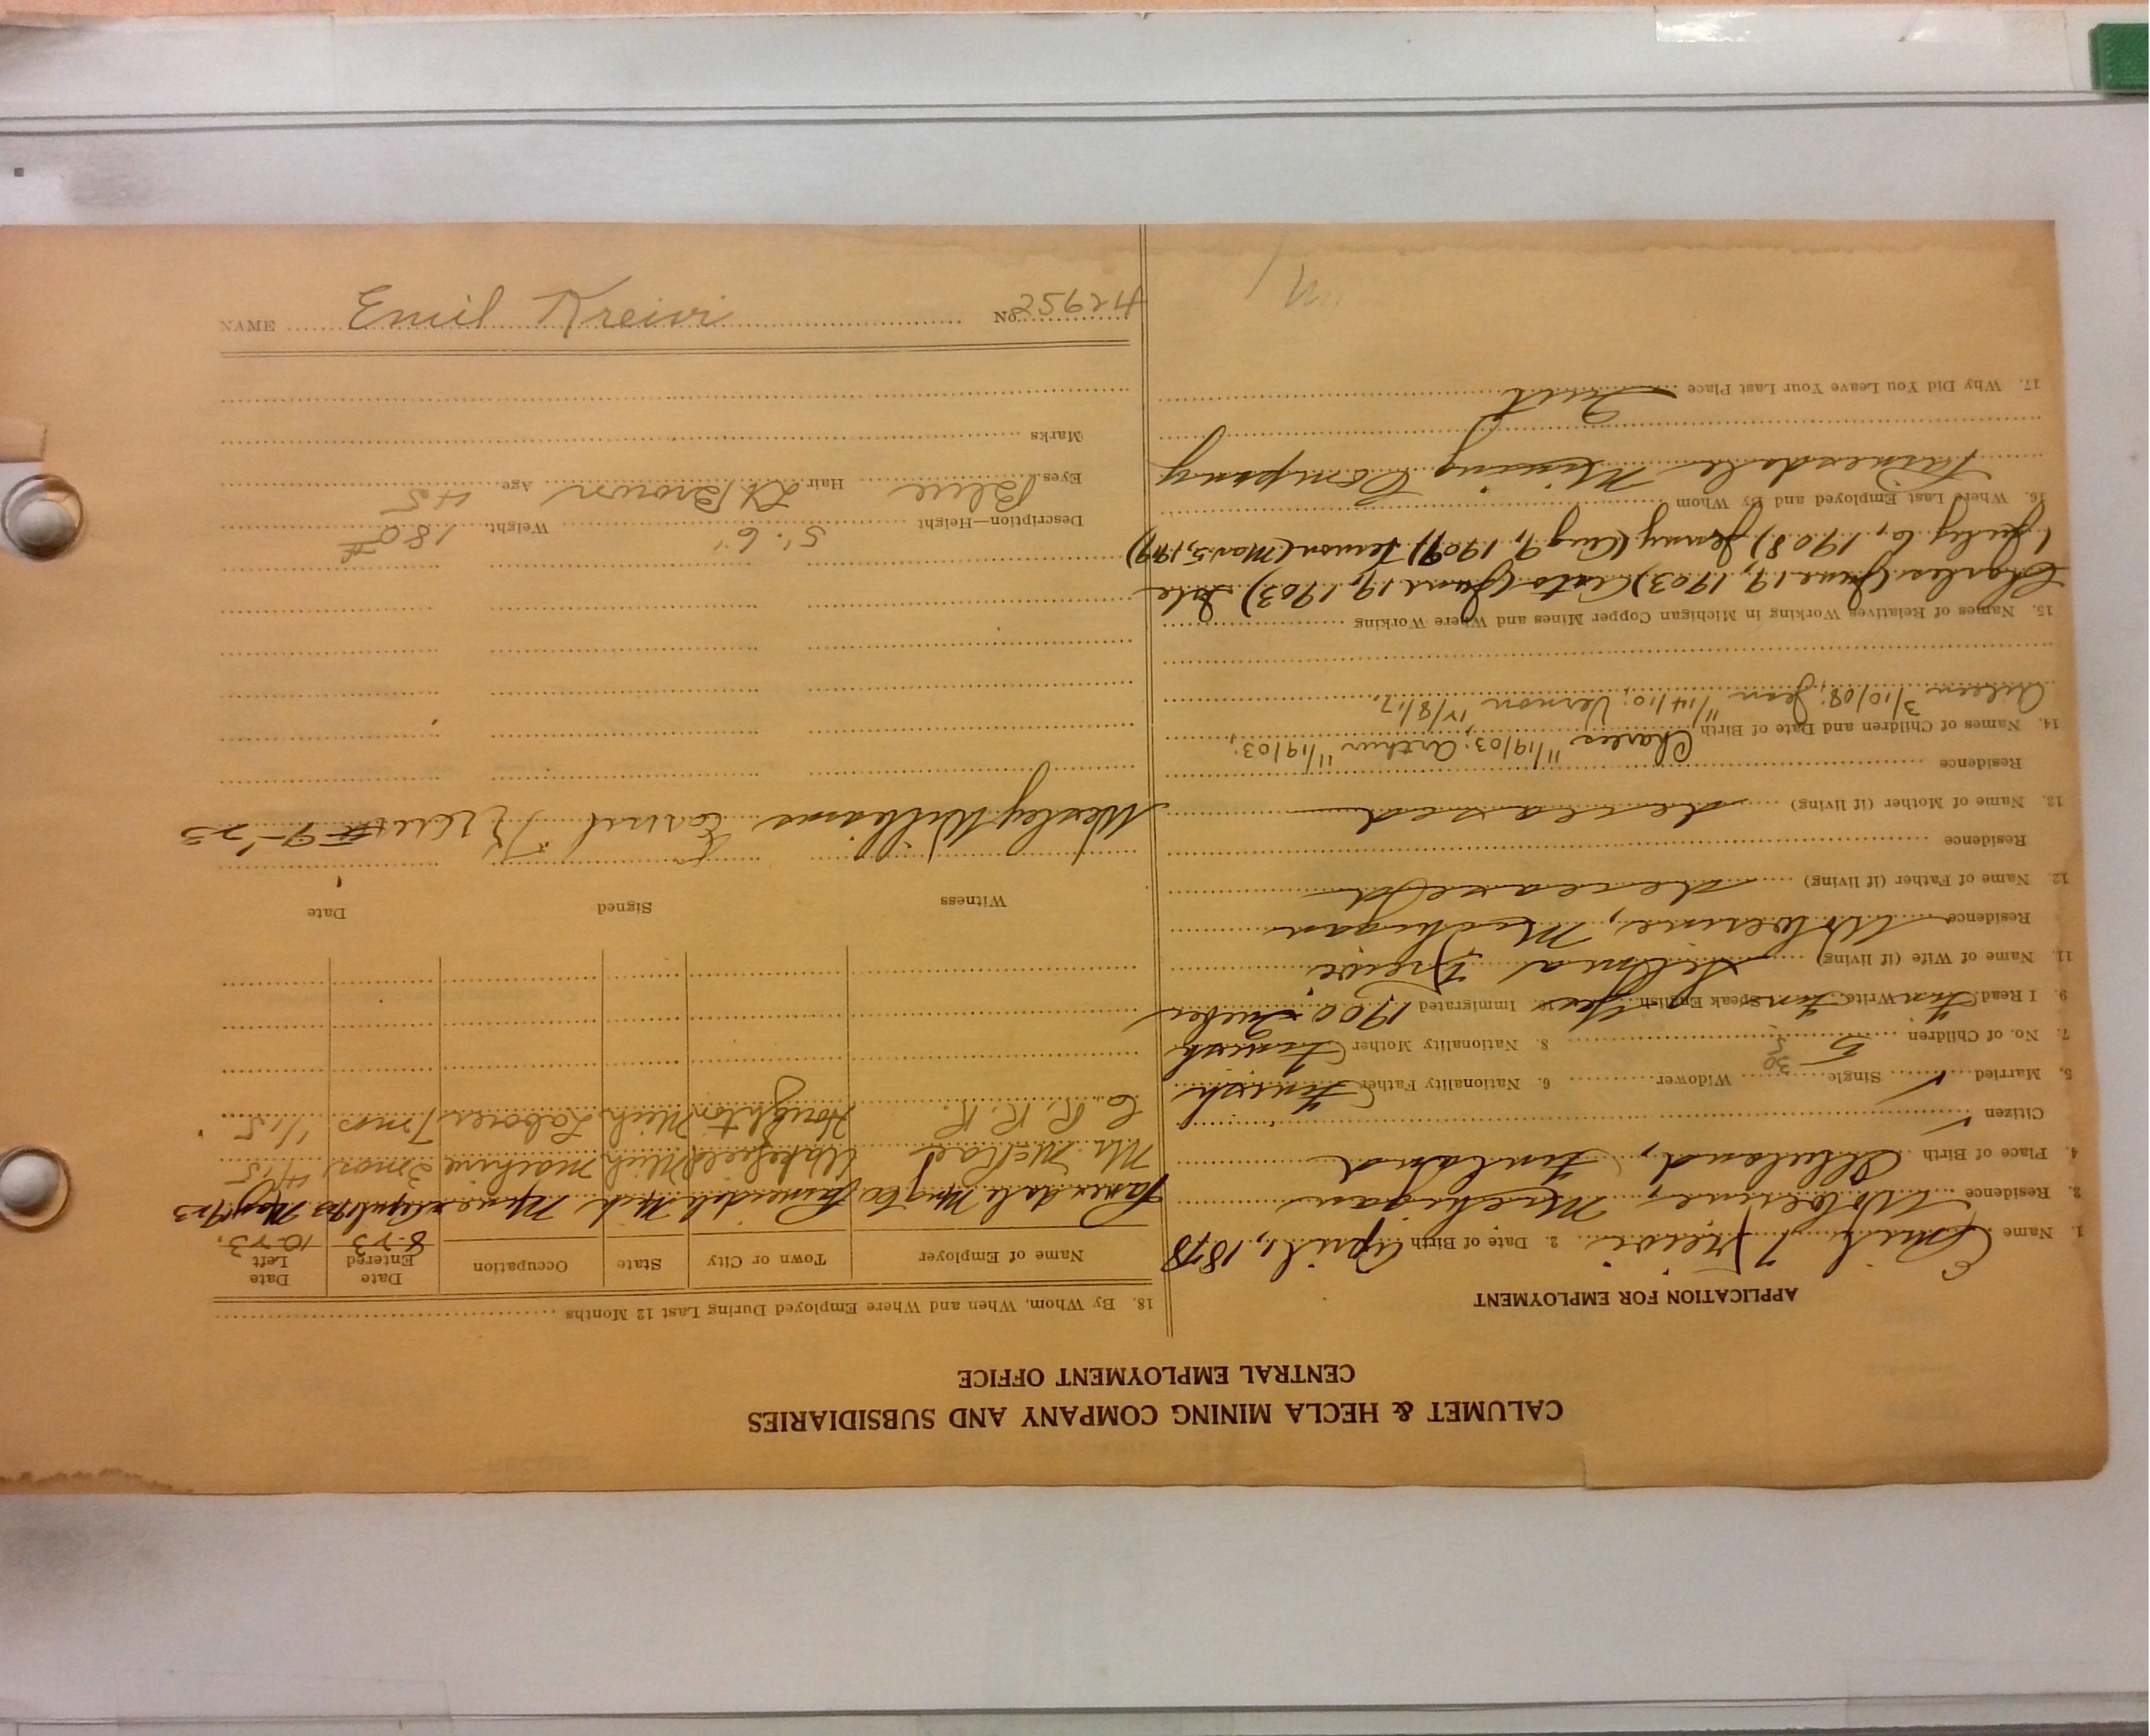 CALUMET & HECLA MINING COMPANY AND SUBSIDIARIES
CENTRAL EMPLOYMENT OFFICE
APPLICATION FOR EMPLOYMENT
1. Name Emil Kreivi 2. Date of Birth April 1, 1878
3. Residence Wolverine, Michigan
4. Place of Birth Finland
Citizen
5. Married ✓ Single Widower 6. Nationality Father Finnish
7. No. of Children 5 8. Nationality Mother Finnish
9. I Read Finn Write Finn Speak English Yes 10. Immigrated 1900 Quebec
11. Name of Wife (if living) Selma Kreivi
Residence Wolverine, Michigan
12. Name of Father (if living) deceased
Residence
13. Name of Mother (if living) deceased
Residence
14. Names of Children and Date of Birth Charles 11/19/03; Arthur 11/19/03;
Aileen 3/10/08; Jenn 11/14/10; Vernon 12/8/17.
15. Names of Relatives Working in Michigan Copper Mines and Where Working
Charles (June 19, 1903) (June 19, 1903)
(July 6, 1908) Jenny (Aug 9, 1909) Vernon (Mar 5, 1919)
16. Where Last Employed and By Whom
Painesdale Mining Company
17. Why Did You Leave Your Last Place Quit
18. By Whom, When and Where Employed During Last 12 Months
Name of Employer Town or City State Occupation Date Entered Date Left
8-23 10-23.
Painesdale Mng Co Painesdale Mich Miner April 1923 May 1923
Mr. McRae Wakefield Mich machine 3 mos. 4/15
C. R. R. R. Houghton Mich Laborer 7 mos 1/15
Witness Signed Date
Wesley Williams 9-'23
Description—Height 5' 6" Weight 180#
Eyes Blue Hair Lt Brown Age 45
Marks
NAME Emil Kreivi No. 25624